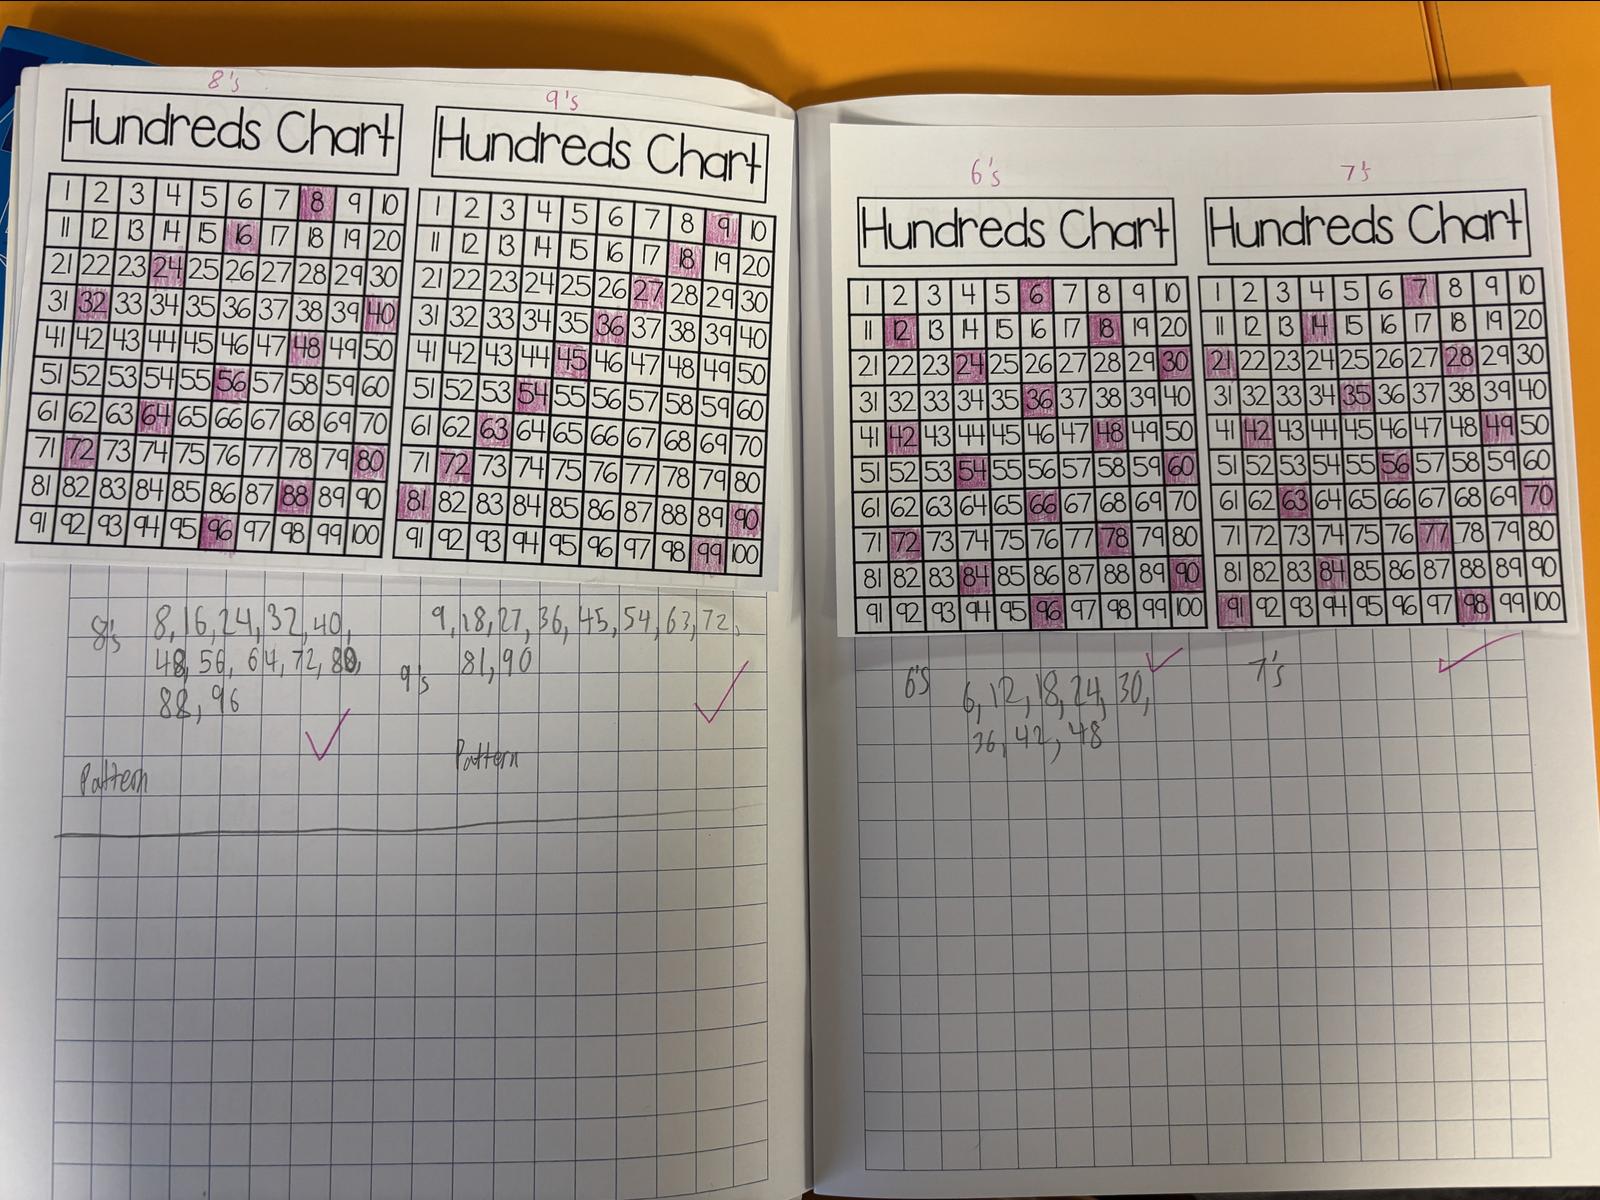 8's
Hundreds Chart
1 2 3 4 5 6 7 8 9 10
11 12 13 14 15 16 17 18 19 20
21 22 23 24 25 26 27 28 29 30
31 32 33 34 35 36 37 38 39 40
41 42 43 44 45 46 47 48 49 50
51 52 53 54 55 56 57 58 59 60
61 62 63 64 65 66 67 68 69 70
71 72 73 74 75 76 77 78 79 80
81 82 83 84 85 86 87 88 89 90
91 92 93 94 95 96 97 98 99 100
9's
Hundreds Chart
1 2 3 4 5 6 7 8 9 10
11 12 13 14 15 16 17 18 19 20
21 22 23 24 25 26 27 28 29 30
31 32 33 34 35 36 37 38 39 40
41 42 43 44 45 46 47 48 49 50
51 52 53 54 55 56 57 58 59 60
61 62 63 64 65 66 67 68 69 70
71 72 73 74 75 76 77 78 79 80
81 82 83 84 85 86 87 88 89 90
91 92 93 94 95 96 97 98 99 100
8's 8, 16, 24, 32, 40,
48, 56, 64, 72, 80,
88, 96
Pattern
9, 18, 27, 36, 45, 54, 63, 72,
9's 81, 90
Pattern
6's
Hundreds Chart
1 2 3 4 5 6 7 8 9 10
11 12 13 14 15 16 17 18 19 20
21 22 23 24 25 26 27 28 29 30
31 32 33 34 35 36 37 38 39 40
41 42 43 44 45 46 47 48 49 50
51 52 53 54 55 56 57 58 59 60
61 62 63 64 65 66 67 68 69 70
71 72 73 74 75 76 77 78 79 80
81 82 83 84 85 86 87 88 89 90
91 92 93 94 95 96 97 98 99 100
7's
Hundreds Chart
1 2 3 4 5 6 7 8 9 10
11 12 13 14 15 16 17 18 19 20
21 22 23 24 25 26 27 28 29 30
31 32 33 34 35 36 37 38 39 40
41 42 43 44 45 46 47 48 49 50
51 52 53 54 55 56 57 58 59 60
61 62 63 64 65 66 67 68 69 70
71 72 73 74 75 76 77 78 79 80
81 82 83 84 85 86 87 88 89 90
91 92 93 94 95 96 97 98 99 100
6's 6, 12, 18, 24, 30,
36, 42, 48
7's